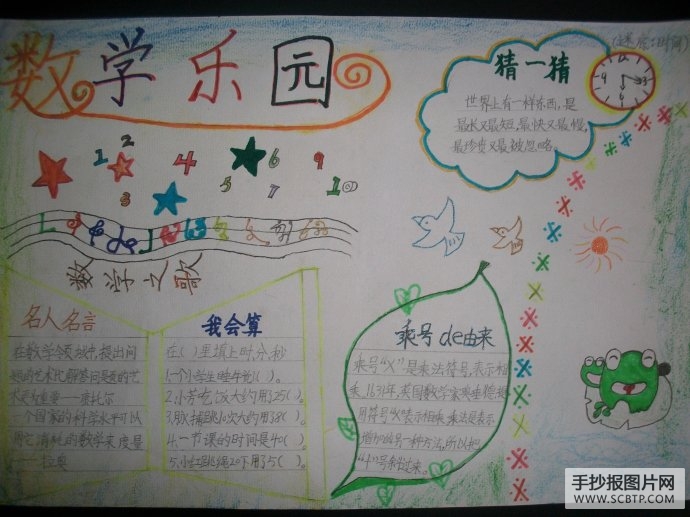 数学乐园
猜一猜
(谜底:时间)
世界上有一样东西,是
最长又最短,最快又最慢,
最珍贵又最被忽略。
1 2 3 4 5 6 7 9 10
数学之歌
名人名言
在数学领域中,提出问
题的艺术比解答问题的艺
术更为重要——康托尔
一个国家的科学水平可以
用它消耗的数学来度量
——拉奥
我会算
在( )里填上时.分.秒
1.一个小学生睡午觉1( )。
2.小芳吃饭大约用25( )。
3.脉搏跳10次大约用8( )。
4.一节课的时间是40( )。
5.小红跳绳20下用了5( )。
乘号de由来
乘号“X”是乘法符号,表示相
乘,1631年,英国数学家奥垂德提
用符号“X”表示相乘.乘法是表示
增加的另一种方法,所以把
“十”号斜过来。
手抄报图片网
WWW.SCBTP.COM